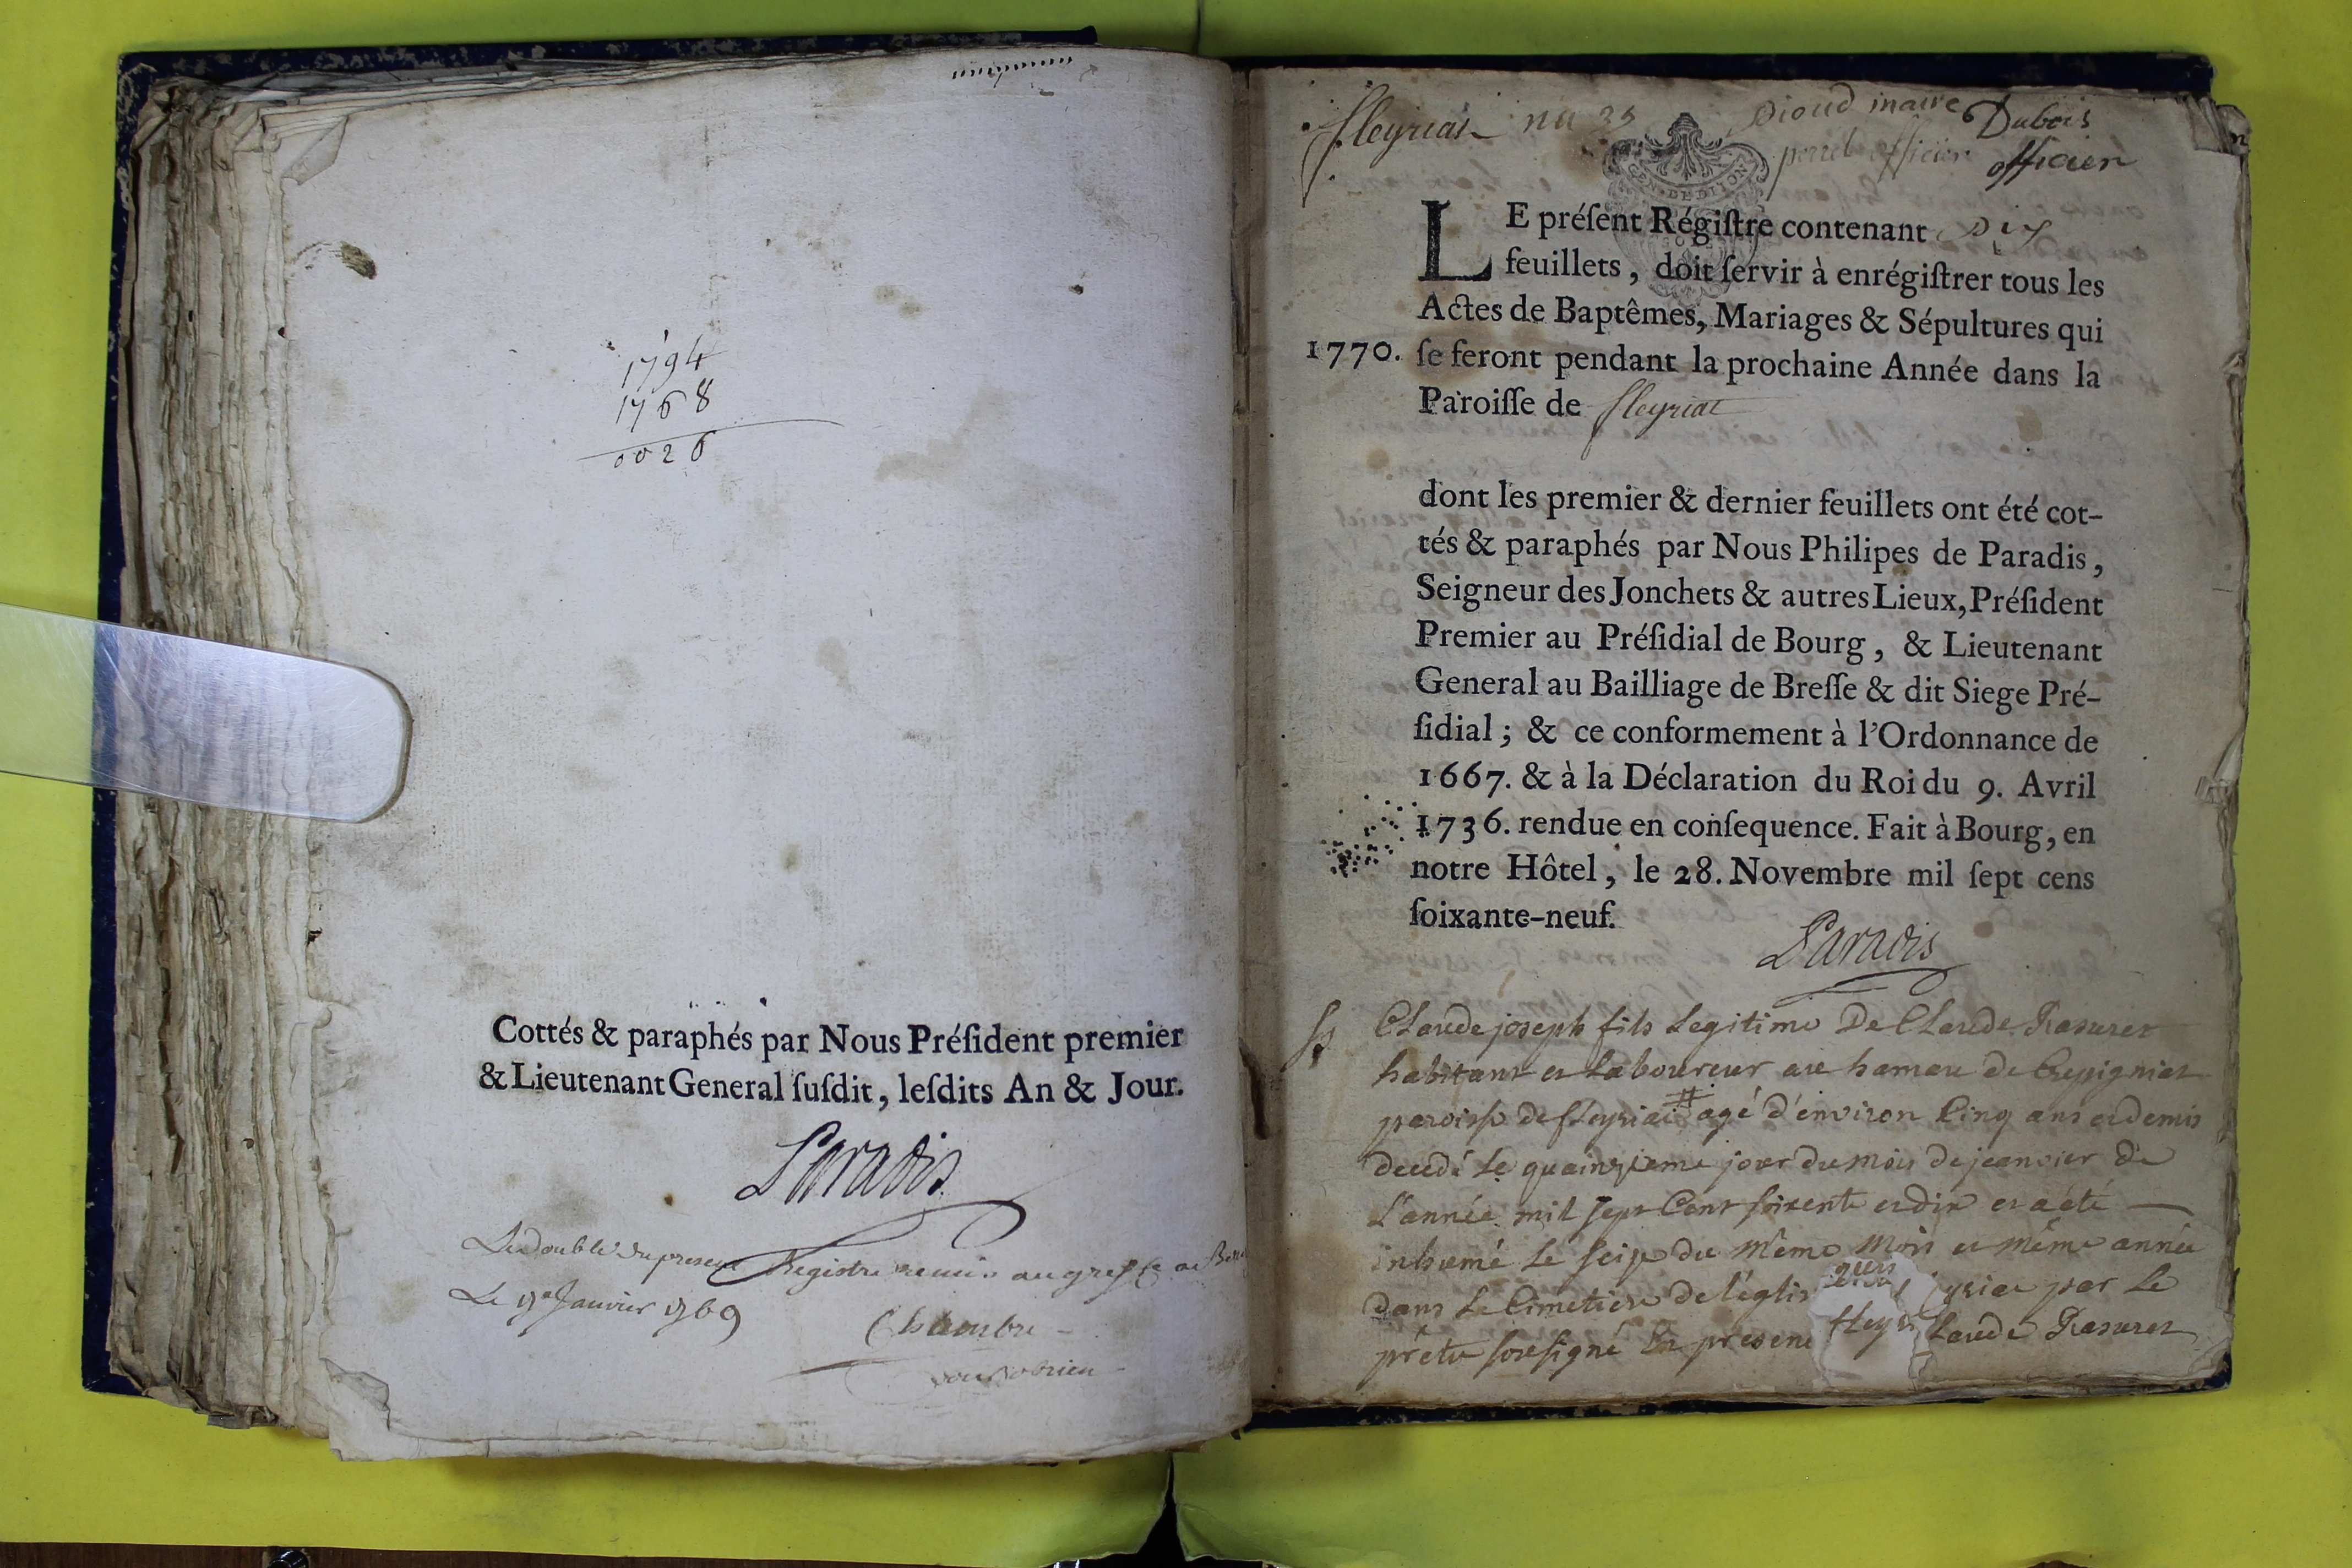 1794
1768
0026
Cottés & paraphés par Nous Préſident premier
& Lieutenant General ſuſdit, leſdits An & Jour.
Paradis
Le double du present Registre remis au greffe
Le Janvier 1769
Chambre
fleyriat
maire Dubois
officier officier
GEN. DE DIJON
LE préſent Régiſtre contenant Dix
feuillets, doit ſervir à enrégiſtrer tous les
Actes de Baptêmes, Mariages & Sépultures qui
1770. ſe feront pendant la prochaine Année dans la
Paroiſſe de fleyriat
dont les premier & dernier feuillets ont été cot-
tés & paraphés par Nous Philipes de Paradis,
Seigneur des Jonchets & autres Lieux, Préſident
Premier au Préſidial de Bourg, & Lieutenant
General au Bailliage de Breſſe & dit Siege Pré-
ſidial; & ce conformement à l'Ordonnance de
1667. & à la Déclaration du Roi du 9. Avril
1736. rendue en conſequence. Fait à Bourg, en
notre Hôtel, le 28. Novembre mil ſept cens
ſoixante-neuf.
Paradis
Claude joseph fils Legitime De Claude Rasurer
habitant et Laboureur au hameau de
paroisse de fleyriat # agé d'environ Cinq ans et demis
decedé Le quainzieme jour du mois de jeanvier De
L'année mil sept Cent soixente et dix et a été
inhumé Le seize du Même Mois et même année
dans Le Cimetiere de l'eglis yriat par Le
prêtre soussigné En presenc laude Rasurer